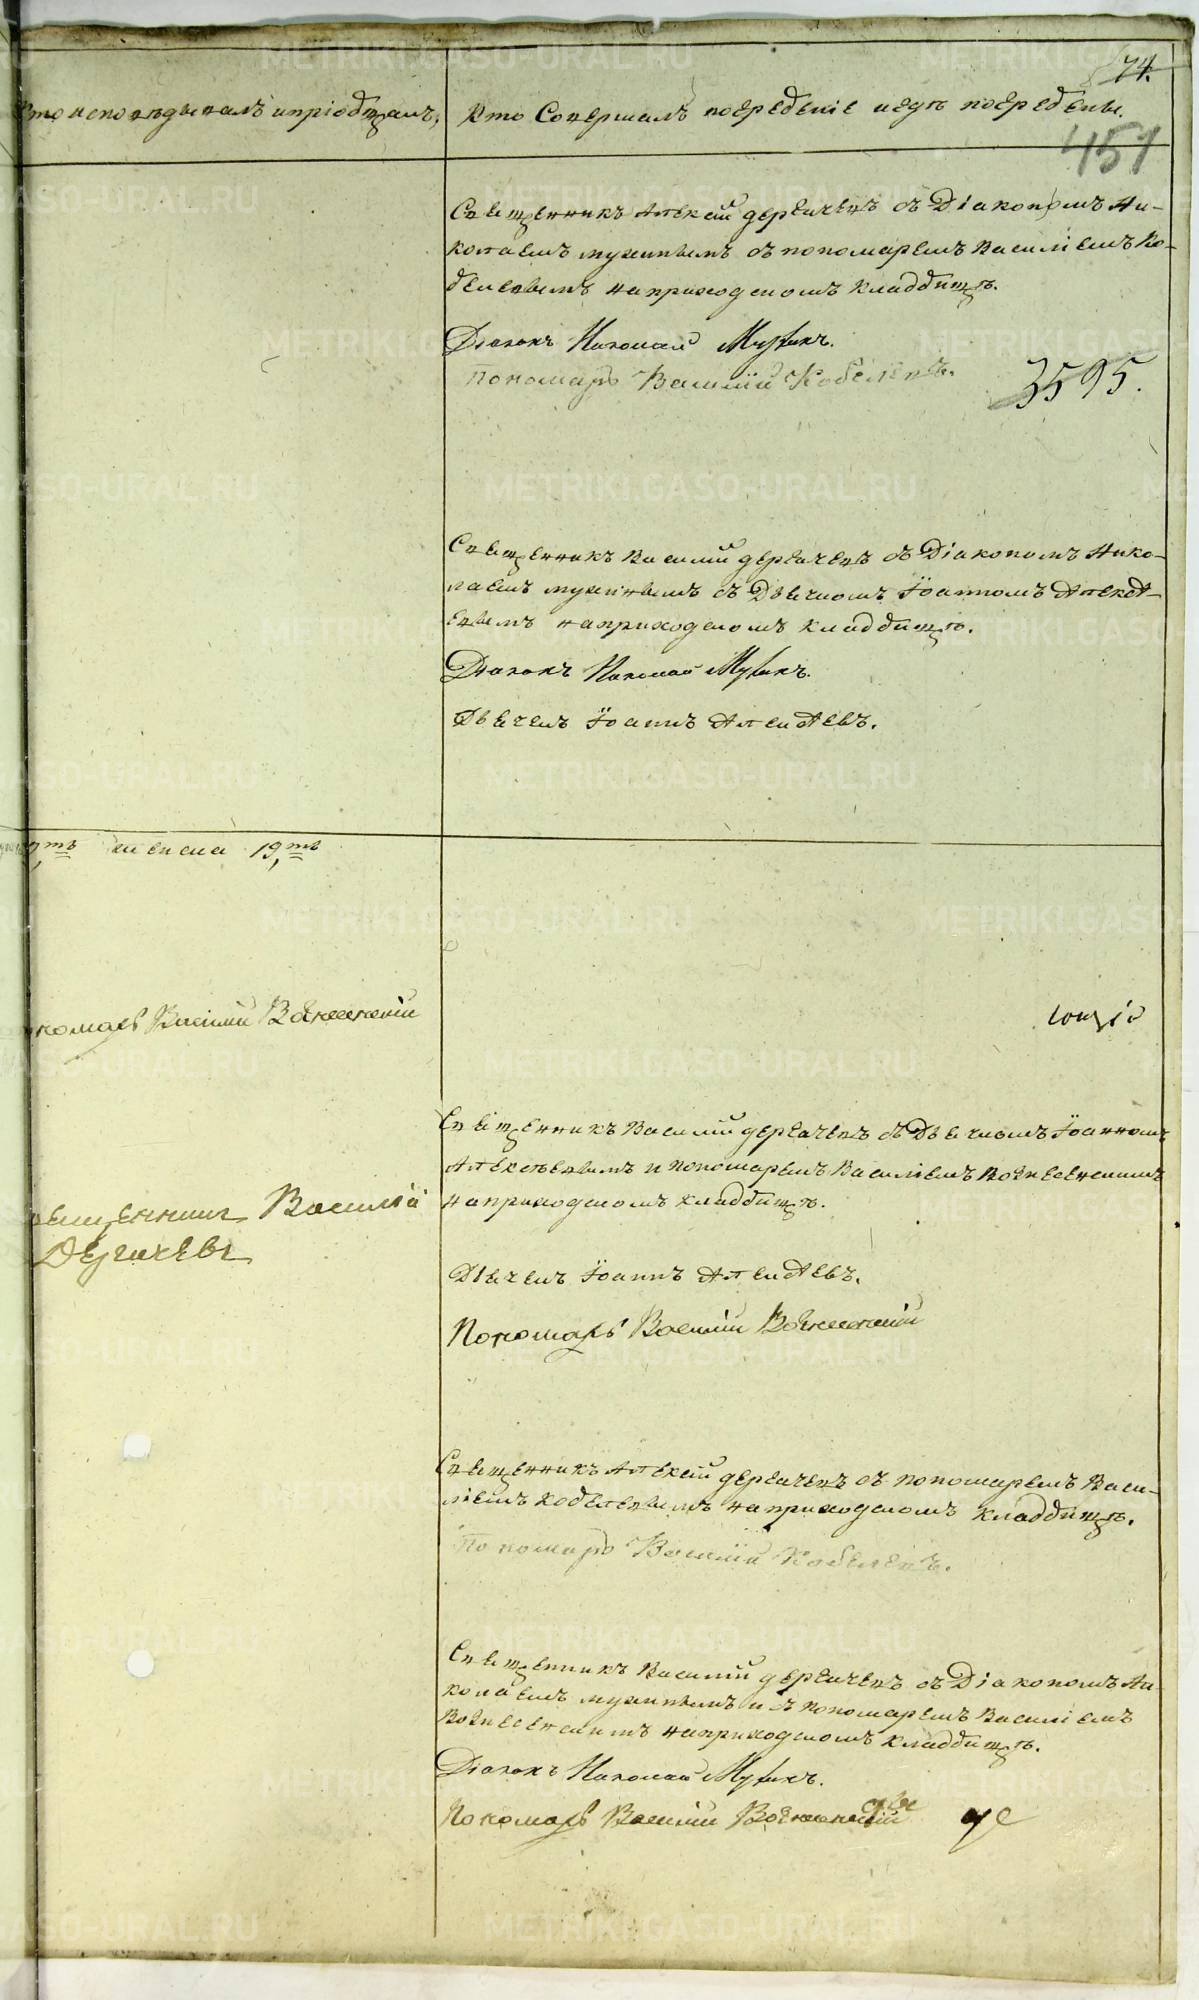 74.
Кто исповѣдывалъ и пріобщалъ,
Кто Совершалъ погребеніе и гдѣ погребены.
451
Священникъ Алексѣй Дергачевъ съ Діакономъ Ни-
колаемъ Мухинымъ съ пономаремъ Василіемъ Ко-
белевымъ на приходскомъ кладбищѣ.
Діаконъ Николай Мухинъ.
Пономарь Василій Кобелевъ.
3595.
Священникъ Василій Дергачевъ съ Діакономъ Нико-
лаемъ Мухинымъ съ Дьячкомъ Іоанномъ Алексѣ-
евымъ на приходскомъ кладбищѣ.
Діаконъ Николай Мухинъ.
Дьячекъ Іоаннъ Алексѣевъ.
женска 19,ть
Пономарь Василій Вознесенскій
Священникъ Василій Дергачевъ съ Дьячкомъ Іоанномъ
Алексѣевымъ и пономаремъ Василіемъ Вознесенскимъ
на приходскомъ кладбищѣ.
Священникъ Василій
Дергачевъ
Дьячекъ Іоаннъ Алексѣевъ.
Пономарь Василій Вознесенскій
Священникъ Алексѣй Дергачевъ съ пономаремъ Васи-
ліемъ Кобелевымъ на приходскомъ кладбищѣ.
Пономарь Василій Кобелевъ.
Священникъ Василій Дергачевъ съ Діакономъ Ни-
колаемъ Мухинымъ и съ пономаремъ Василіемъ
Вознесенскимъ на приходскомъ кладбищѣ.
Діаконъ Николай Мухинъ.
Пономарь Василій Вознесенскій
METRIKI.GASO-URAL.RU